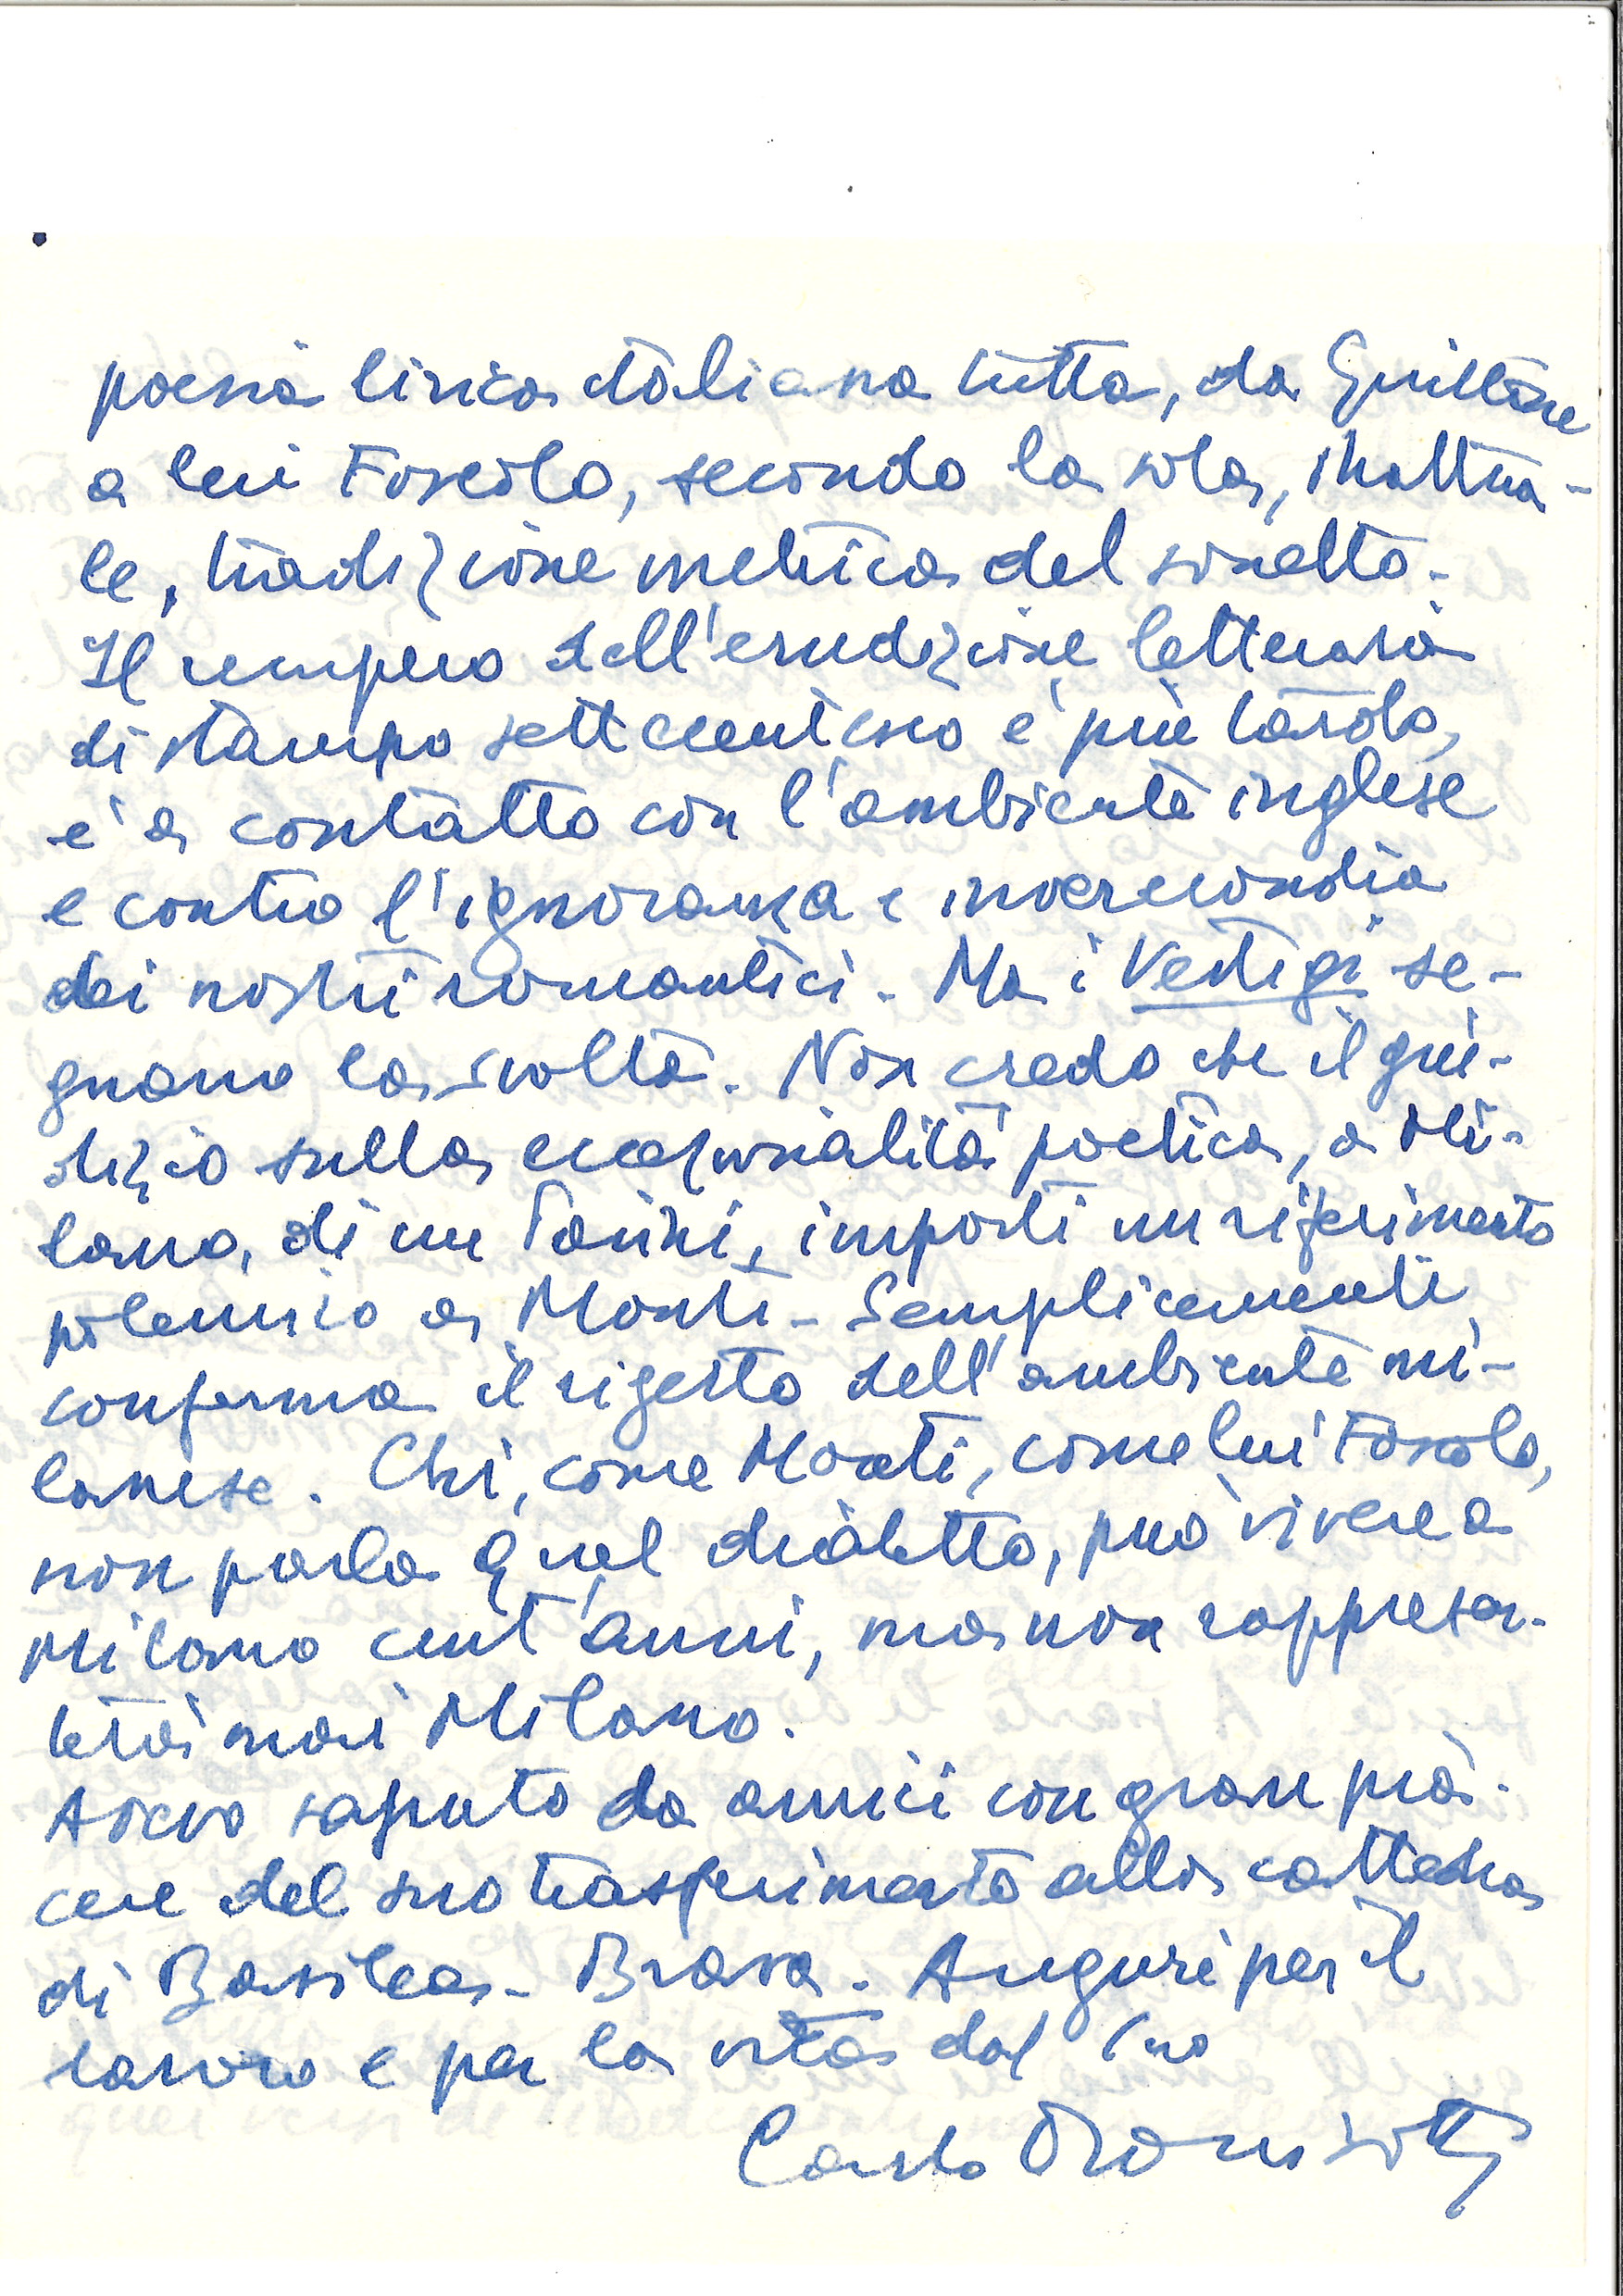 poesia lirica italiana tutta, da Guittone
a lui Foscolo, secondo la sola, inattua-
le, tradizione metrica del sonetto.
Il recupero dell'erudizione letteraria
di stampo settecentesco è più tardo,
è a contatto con l'ambiente inglese
e contro l'ignoranza e inverecondia
dei nostri romantici. Ma i Vestigi se-
gnano la svolta. Non credo che il giu-
dizio sulla eccezionalità poetica, a Mi-
lano, di un Parini, importi un riferimento
polemico a Monti. Semplicemente
conferma il rigetto dell'ambiente mi-
lanese. Chi, come Monti, come lui Foscolo,
non parla quel dialetto, può vivere a
Milano cent'anni, ma non rappresen-
terà mai Milano.
Avevo saputo da amici con gran pia-
cere del suo trasferimento alla cattedra
di Basilea. Brava. Auguri per il
lavoro e per la vita dal suo
Carlo Dionisotti